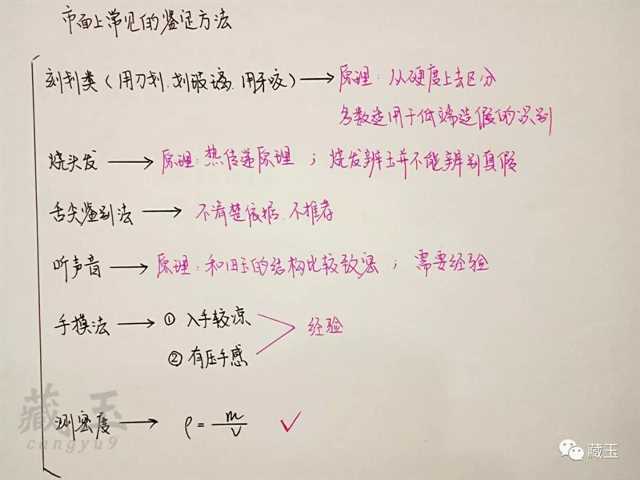 市面上常见的鉴定方法
刻划类(用刀划.划玻璃.用牙咬)→原理:从硬度上去区分
多数适用于低端造假的识别
烧头发→原理:热传递原理;烧发辨玉并不能辨别真假
舌尖鉴别法→不清楚依据.不推荐
听声音→原理:和田玉的结构比较致密;需要经验
手摸法→①入手较凉
②有压手感
经验
测密度→ρ=m/v ✓
藏玉
cangyu9
藏玉